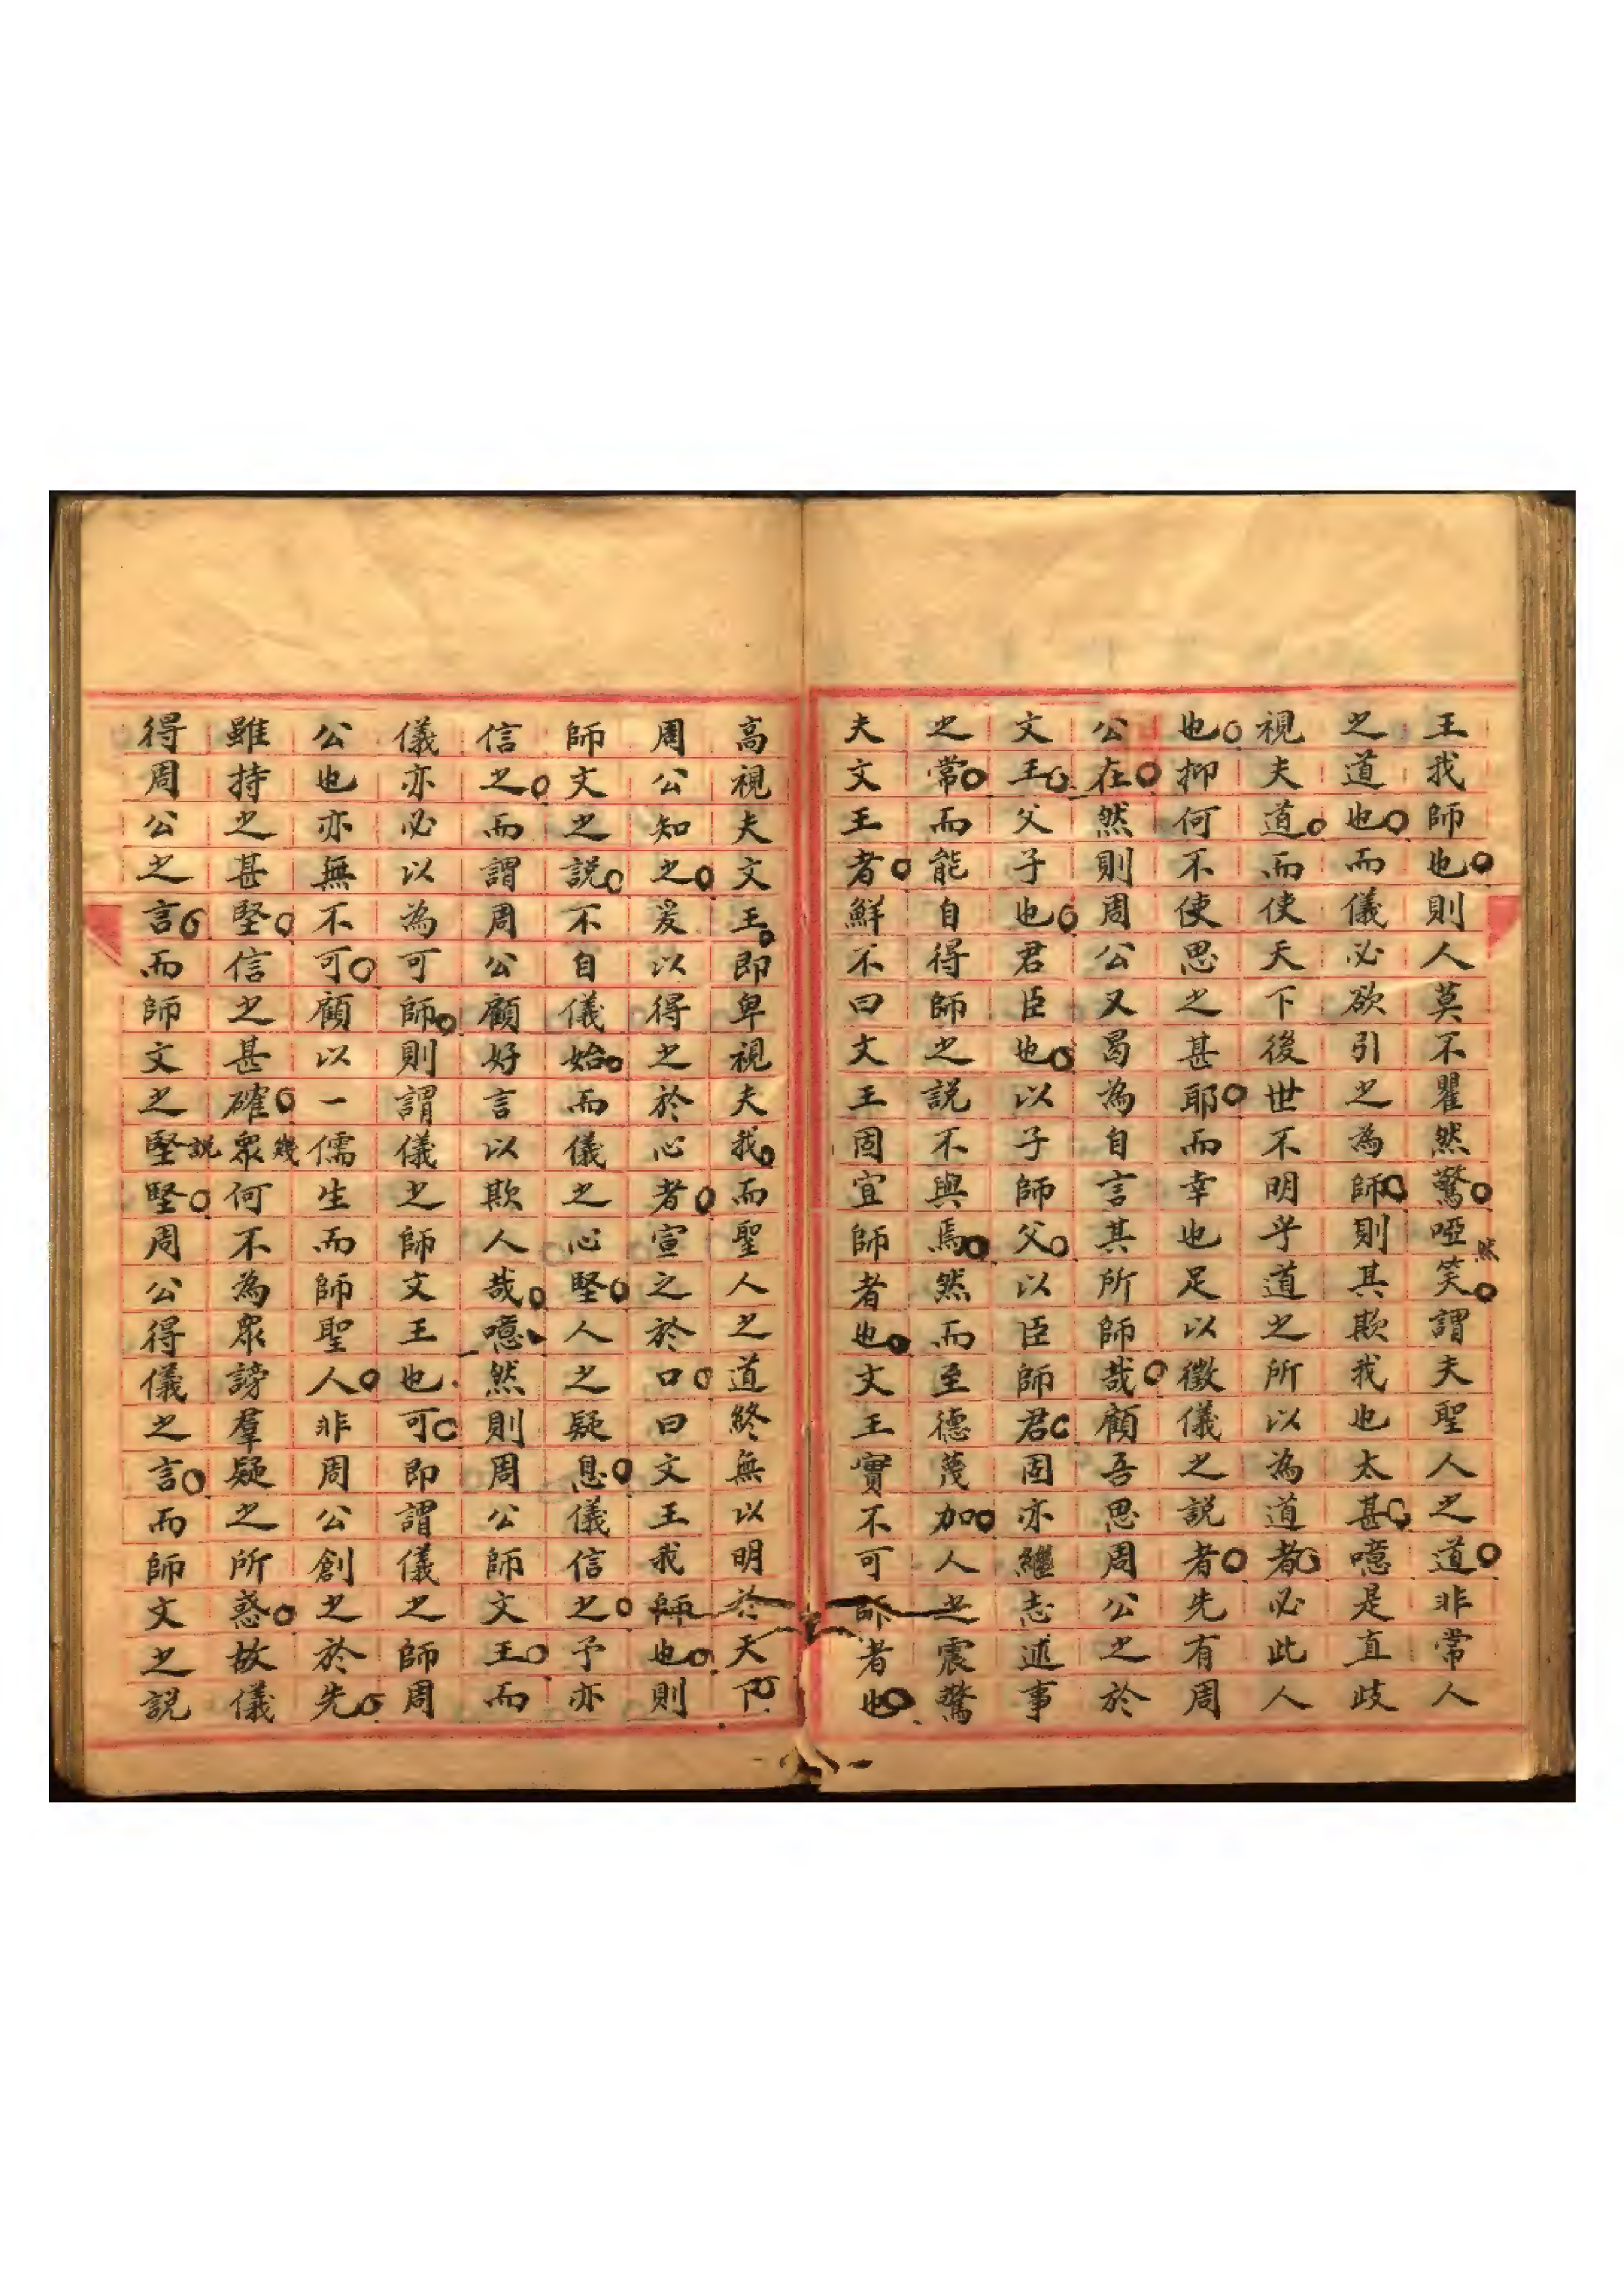 王我師也則人莫不瞿然驚啞然笑謂夫聖人之道非常人
之道也而儀必欲引之為師則其欺我也太甚噫是直歧
視夫道而使天下後世不明乎道之所以為道者必此人
也抑何不使思之甚耶而幸也足以徵儀之説者先有周
公在然則周公又曷為自言其所師哉顧吾思周公之於
文王父子也君臣也以子師父以臣師君固亦繼志述事
之常而能自得師之説不與焉然而至德蔑加人之震驚
夫文王者鮮不曰文王固宜師者也文王實不可師者也
高視夫文王即卑視夫我而聖人之道終無以明於天下
周公知之爰以得之於心者宣之於口曰文王我師也則
師文之説不自儀始而儀之心堅人之疑息儀信之予亦
信之而謂周公顧好言以欺人哉噫然則周公師文王而
儀亦必以為可師則謂儀之師文王也可即謂儀之師周
公也亦無不可顧以一儒生而師聖人非周公創之於先
雖持之甚堅信之甚確眾幾何不為眾謗羣疑之所惑故儀
得周公之言而師文之説堅堅周公得儀之言而師文之説